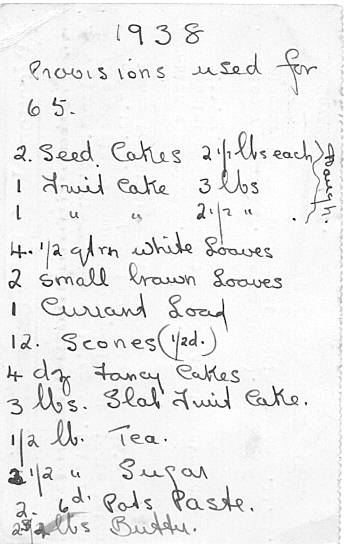 1938
Provisions used for
65.
2. Seed. Cakes 2 1/2 lbs each
1 Fruit Cake 3 lbs
1 " " 2 1/2 " .
Bought.
4. 1/2 qtrn white Loaves
2 small brown Loaves
1 Currant Load
12. Scones (1/2d.)
4 dz Fancy Cakes
3 lbs. Slab Fruit Cake.
1/2 lb. Tea.
2 1/2 " Sugar
2. 6d. Pots Paste.
lbs Butter.